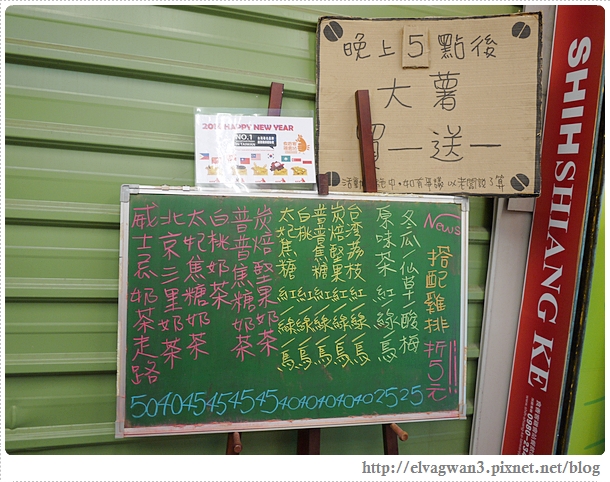 晚上5點後
大薯
買一送一
活動施中,如有爭議 以老闆說了算
2014 HAPPY NEW YEAR
NO.1
News
搭配雞排折5元!!
冬瓜/仙草/酸梅 25
原味茶 紅/綠/烏 25
台湾荔枝 紅/綠/烏 40
炭焙堅果 紅/綠/烏 40
普普焦糖 紅/綠/烏 40
白桃 紅/綠/烏 40
太妃焦糖 紅/綠/烏 40
炭焙堅果奶茶 45
普普焦糖奶茶 45
白桃奶茶 45
太妃焦糖奶茶 45
北京三里奶茶 40
威士忌奶茶走路 50
SHIHSHIANG KE
http://elvagwan3.pixnet.net/blog